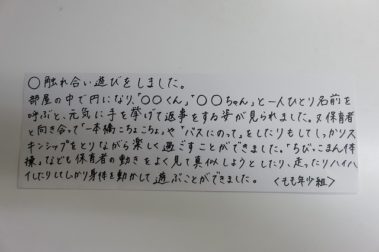 ○触れ合い遊びをしました。
部屋の中で円になり、「○○くん」「○○ちゃん」と一人ひとり名前を
呼ぶと、元気に手を挙げて返事をする姿が見られました。又、保育者
と向き合って「一本橋こちょこちょ」や「バスにのって」をしたりもしてしっかりス
キンシップをとりながら楽しく過ごすことができました。「ちびっこまん体
操」なども保育者の動きをよく見て真似しようとしたり、走ったりハイハ
イしたりしっかり身体を動かして遊ぶことができました。 〈もも年少組〉